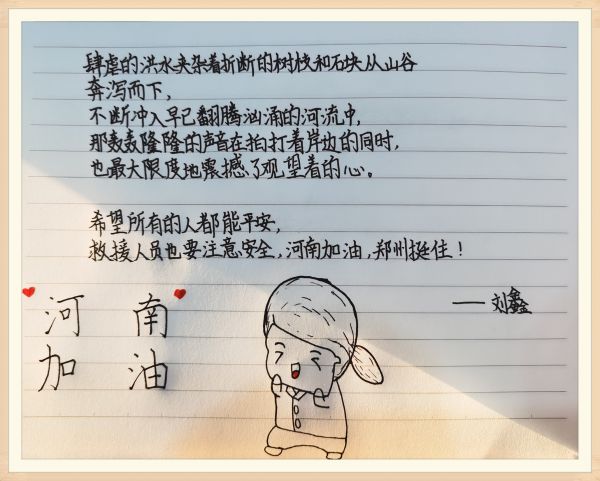 肆虐的洪水夹杂着折断的树枝和石块从山谷
奔泻而下,
不断冲入早已翻腾汹涌的河流中,
那轰轰隆隆的声音在拍打着岸边的同时,
也最大限度地震撼了观望着的心。
希望所有的人都能平安,
救援人员也要注意安全,河南加油,郑州挺住!
——刘鑫
河南
加油